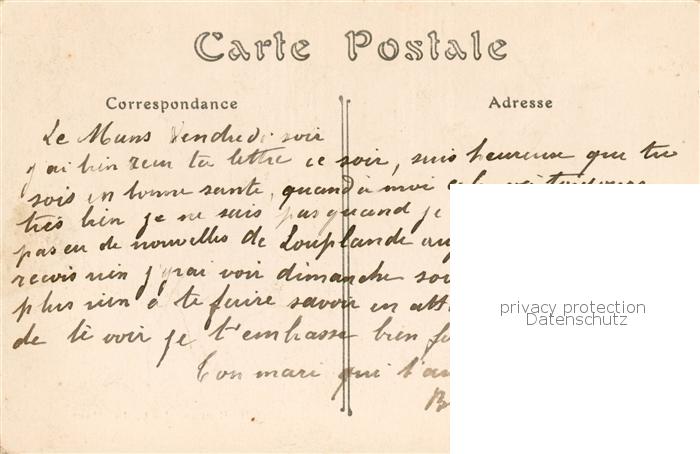 Carte Postale
Correspondance
Adresse
Le Mans Vendredi soir
j'ai bien recu ta lettre ce soir, suis heureuse que tu
sois en bonne santé, quand à moi cela va toujours
très bien je ne sais pas quand je
pas eu de nouvelles de Louplande au
recois rien j'irai voir dimanche
plus rien à te faire savoir en att
de te voir je t'embrasse bien
Ton mari qui t'a
privacy protection
Datenschutz